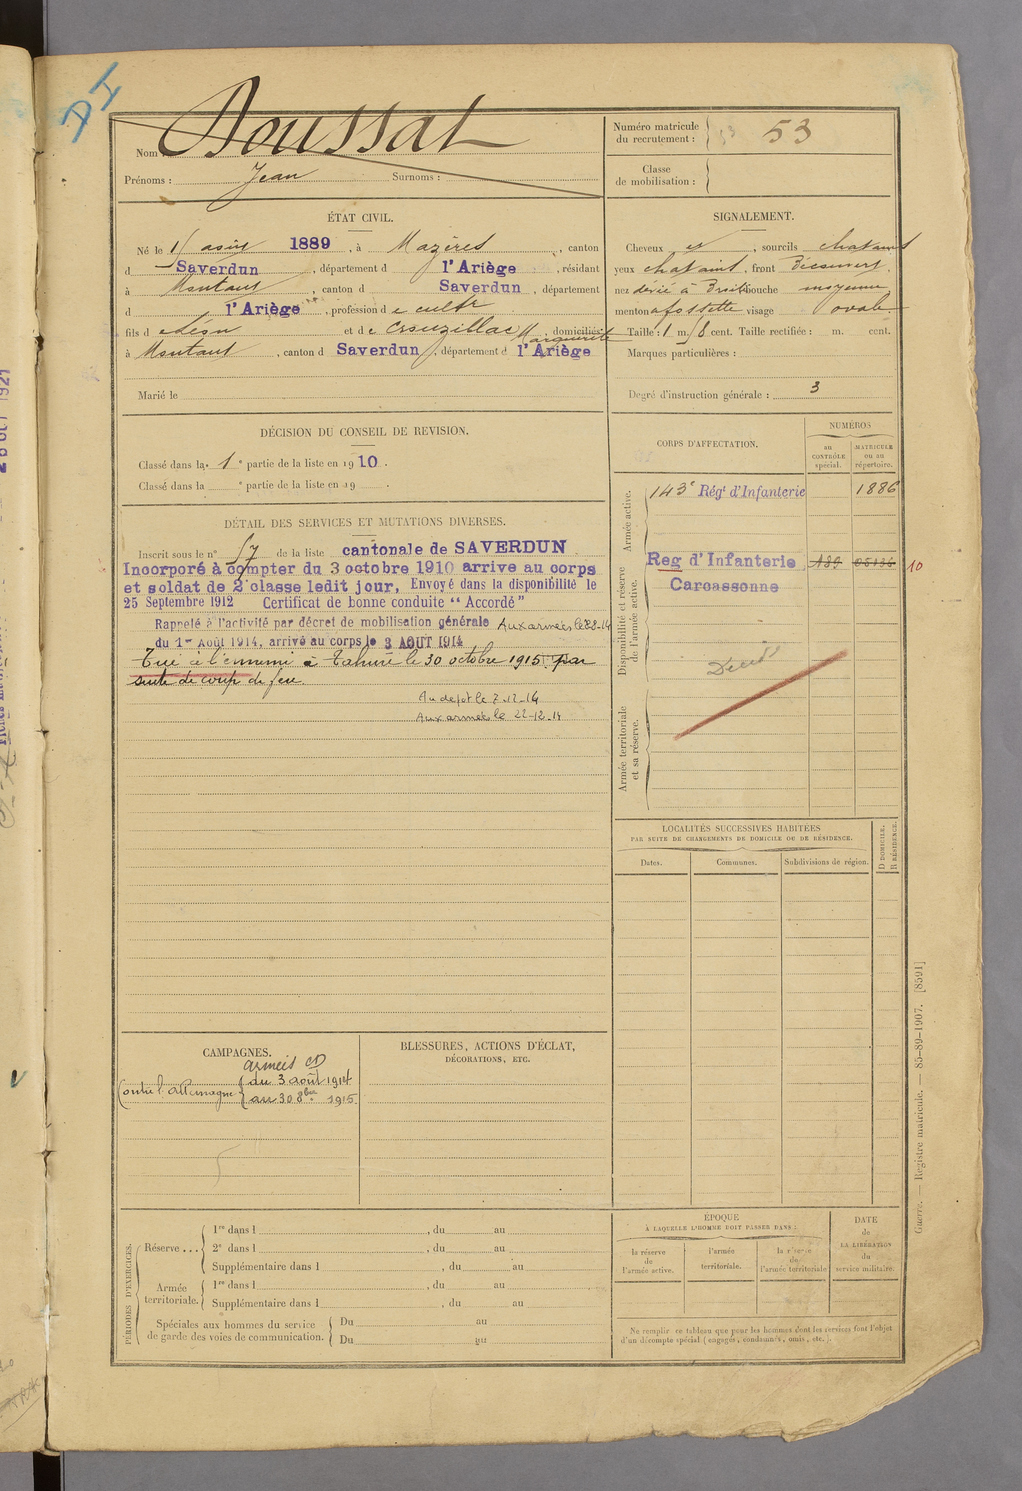 DI
Nom : Boussat
Prénoms : Jean Surnoms :
Numéro matricule du recrutement : 53
Classe de mobilisation :
ÉTAT CIVIL.
Né le 15 août 1889, à Mazères, canton
d Saverdun, département d l'Ariège, résidant
à Montaut, canton d Saverdun, département
d l'Ariège, profession de cultr
fils de Léon et de Crouzillac Marguerite, domiciliés
à Montaut, canton d Saverdun, département d l'Ariège
Marié le
SIGNALEMENT.
Cheveux et, sourcils chatains
yeux chatains, front Découvert,
nez dévié à Droite bouche moyenne
menton à fossette visage ovale
Taille : 1 m. 58 cent. Taille rectifiée : m. cent.
Marques particulières :
Degré d'instruction générale : 3
DÉCISION DU CONSEIL DE REVISION.
Classé dans la 1e partie de la liste en 1910.
Classé dans la e partie de la liste en 19 .
DÉTAIL DES SERVICES ET MUTATIONS DIVERSES.
Inscrit sous le n° 57 de la liste cantonale de SAVERDUN
Incorporé à compter du 3 octobre 1910 arrive au corps
et soldat de 2e classe ledit jour, Envoyé dans la disponibilité le
25 Septembre 1912 Certificat de bonne conduite "Accordé"
Rappelé à l'activité par décret de mobilisation générale Aux armées le 28-8-14
du 1er Août 1914, arrivé au corps le 3 AOUT 1914
Tué à l'ennemi à Tahure le 30 octobre 1915 par
suite de coup de feu
Au depot le 7-12-14
Aux armées le 22-12-14
CORPS D'AFFECTATION.
NUMÉROS
au contrôle spécial.
MATRICULE ou au répertoire.
Armée active.
143e Régt d'Infanterie 1886
Disponibilité et réserve de l'armée active.
Reg d'Infanterie 10
Carcassonne
Décédé
Armée territoriale et sa réserve.
LOCALITÉS SUCCESSIVES HABITÉES
PAR SUITE DE CHANGEMENTS DE DOMICILE OU DE RÉSIDENCE.
Dates. Communes. Subdivisions de région.
D DOMICILE.
R RÉSIDENCE.
CAMPAGNES.
armées CD
Contre l'allemagne du 3 août 1914
au 30 8bre 1915
BLESSURES, ACTIONS D'ÉCLAT,
DÉCORATIONS, ETC.
PÉRIODES D'EXERCICES.
Réserve ... 1re dans l , du au
2e dans l , du au
Supplémentaire dans l , du au
Armée territoriale. 1re dans l , du au
Supplémentaire dans l , du au
Spéciales aux hommes du service Du au
de garde des voies de communication. Du au
ÉPOQUE
À LAQUELLE L'HOMME DOIT PASSER DANS :
la réserve de l'armée active.
l'armée territoriale.
la réserve de l'armée territoriale
DATE de LA LIBÉRATION du service militaire.
Ne remplir ce tableau que pour les hommes dont les services font l'objet
d'un décompte spécial (engagés, condamnés, omis, etc.).
Guerre. — Registre matricule. — 85-89-1907. [8591]